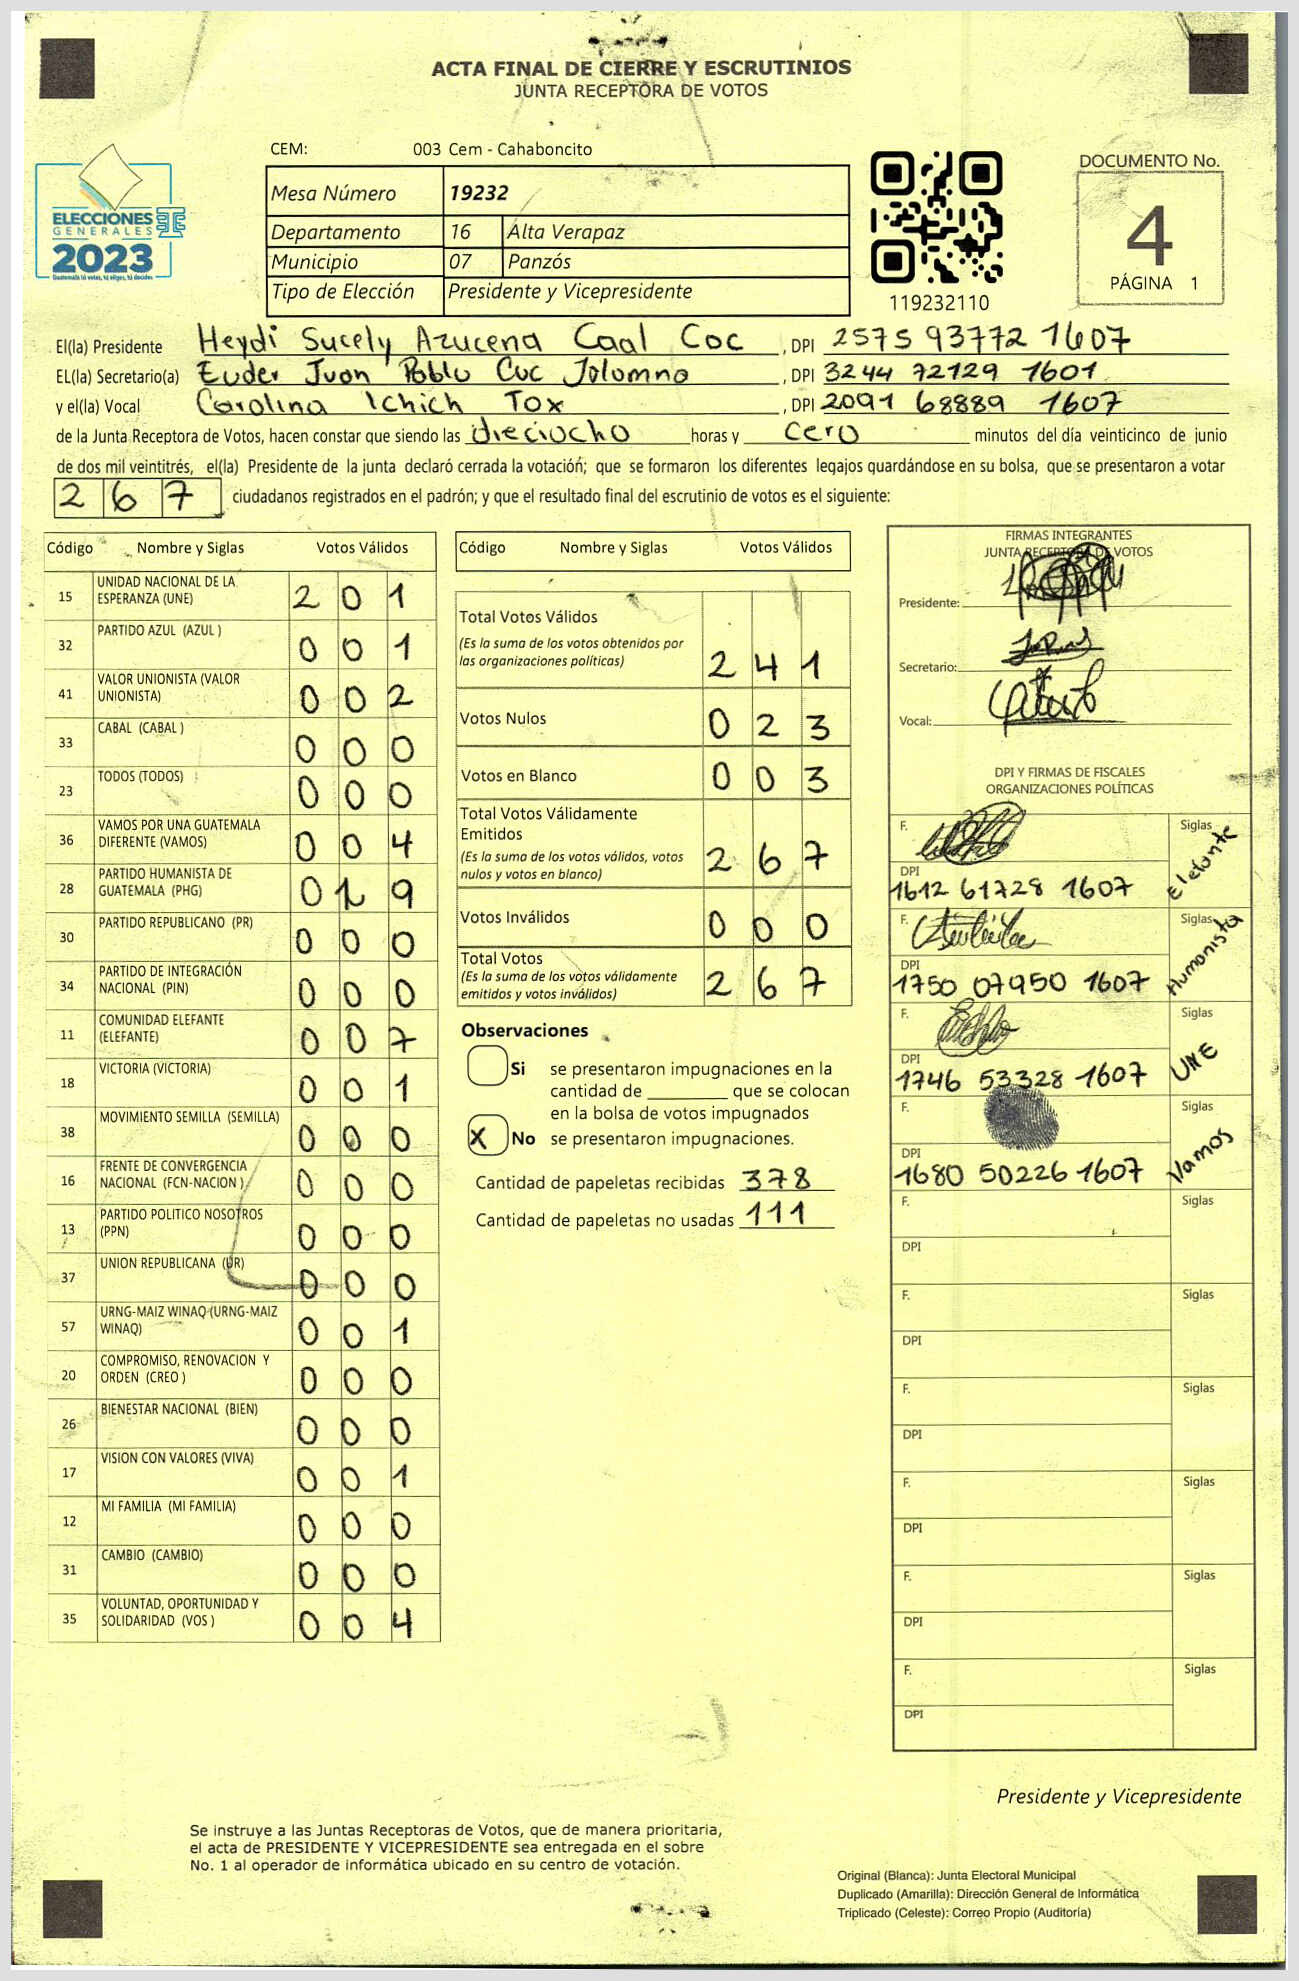 ACTA FINAL DE CIERRE Y ESCRUTINIOS
JUNTA RECEPTORA DE VOTOS
CEM: 003 Cem - Cahaboncito
ELECCIONES
GENERALES
2023
Guatemala tú votas, tú eliges, tú decides
Mesa Número 19232
Departamento 16 Alta Verapaz
Municipio 07 Panzós
Tipo de Elección Presidente y Vicepresidente
119232110
DOCUMENTO No.
4
PÁGINA 1
El(la) Presidente Heydi Sucely Azucena Caal Coc , DPI 2575 93772 1607
EL(la) Secretario(a) Euder Juan Pablo Cuc Jolomna , DPI 3244 72129 1601
y el(la) Vocal Carolina Ichich Tox , DPI 2091 68889 1607
de la Junta Receptora de Votos, hacen constar que siendo las dieciocho horas y cero minutos del día veinticinco de junio
de dos mil veintitrés, el(la) Presidente de la junta declaró cerrada la votación; que se formaron los diferentes legajos quardándose en su bolsa, que se presentaron a votar
267 ciudadanos registrados en el padrón; y que el resultado final del escrutinio de votos es el siguiente:
Código Nombre y Siglas Votos Válidos
15 UNIDAD NACIONAL DE LA
ESPERANZA (UNE) 2 0 1
32 PARTIDO AZUL (AZUL ) 0 0 1
41 VALOR UNIONISTA (VALOR
UNIONISTA) 0 0 2
33 CABAL (CABAL ) 0 0 0
23 TODOS (TODOS) 0 0 0
36 VAMOS POR UNA GUATEMALA
DIFERENTE (VAMOS) 0 0 4
28 PARTIDO HUMANISTA DE
GUATEMALA (PHG) 0 1 9
30 PARTIDO REPUBLICANO (PR) 0 0 0
34 PARTIDO DE INTEGRACIÓN
NACIONAL (PIN) 0 0 0
11 COMUNIDAD ELEFANTE
(ELEFANTE) 0 0 7
18 VICTORIA (VICTORIA) 0 0 1
38 MOVIMIENTO SEMILLA (SEMILLA) 0 0 0
16 FRENTE DE CONVERGENCIA
NACIONAL (FCN-NACION ) 0 0 0
13 PARTIDO POLITICO NOSOTROS
(PPN) 0 0 0
37 UNION REPUBLICANA (UR) 0 0 0
57 URNG-MAIZ WINAQ (URNG-MAIZ
WINAQ) 0 0 1
20 COMPROMISO, RENOVACION Y
ORDEN (CREO ) 0 0 0
26 BIENESTAR NACIONAL (BIEN) 0 0 0
17 VISION CON VALORES (VIVA) 0 0 1
12 MI FAMILIA (MI FAMILIA) 0 0 0
31 CAMBIO (CAMBIO) 0 0 0
35 VOLUNTAD, OPORTUNIDAD Y
SOLIDARIDAD (VOS ) 0 0 4
Código Nombre y Siglas Votos Válidos
Total Votos Válidos
(Es la suma de los votos obtenidos por
las organizaciones políticas) 2 4 1
Votos Nulos 0 2 3
Votos en Blanco 0 0 3
Total Votos Válidamente
Emitidos
(Es la suma de los votos válidos, votos
nulos y votos en blanco) 2 6 7
Votos Inválidos 0 0 0
Total Votos
(Es la suma de los votos válidamente
emitidos y votos inválidos) 2 6 7
Observaciones
Si se presentaron impugnaciones en la
cantidad de ________ que se colocan
en la bolsa de votos impugnados
X No se presentaron impugnaciones.
Cantidad de papeletas recibidas 378
Cantidad de papeletas no usadas 111
FIRMAS INTEGRANTES
JUNTA RECEPTORA DE VOTOS
Presidente:
Secretario:
Vocal:
DPI Y FIRMAS DE FISCALES
ORGANIZACIONES POLÍTICAS
F. Siglas Elefante
DPI
1612 61728 1607
F. Siglas Humanista
DPI
1750 07950 1607
F. Siglas UNE
DPI
1746 53328 1607
F. Siglas Vamos
DPI
1680 50226 1607
F. Siglas
DPI
F. Siglas
DPI
F. Siglas
DPI
F. Siglas
DPI
F. Siglas
DPI
F. Siglas
DPI
Presidente y Vicepresidente
Se instruye a las Juntas Receptoras de Votos, que de manera prioritaria,
el acta de PRESIDENTE Y VICEPRESIDENTE sea entregada en el sobre
No. 1 al operador de informática ubicado en su centro de votación.
Original (Blanca): Junta Electoral Municipal
Duplicado (Amarilla): Dirección General de Informática
Triplicado (Celeste): Correo Propio (Auditoría)